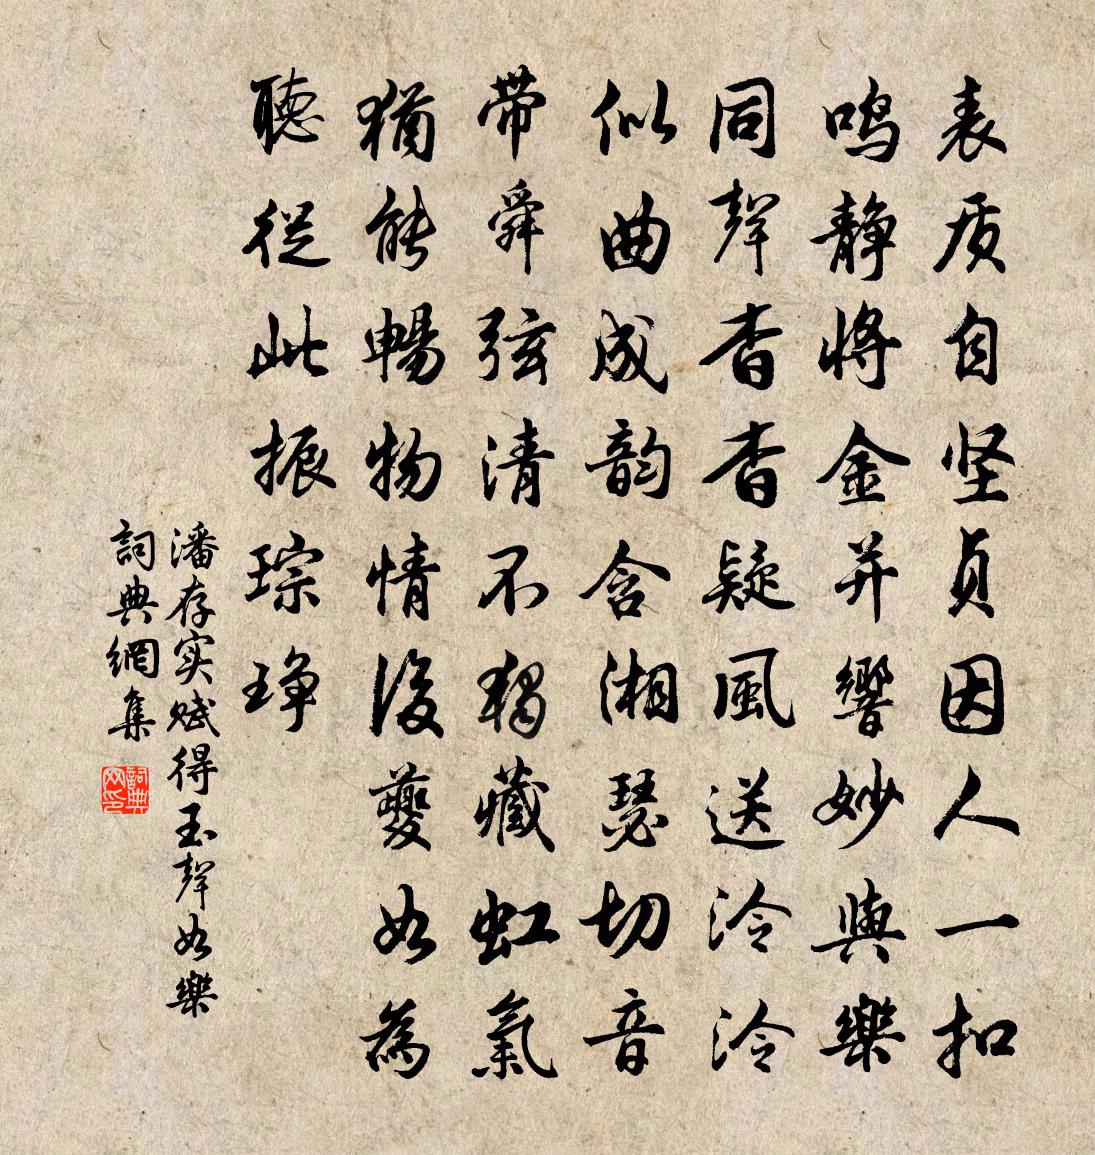 表质自坚贞因人一扣
鸣静将金并響妙與樂
同聲杳杳疑風送泠泠
似曲成韵含湘瑟切音
带舜弦清不獨藏虹氣
猶能暢物情後夔如為
聽從此振琮琤
潘存实赋得玉聲如樂
詞典網集
詞典
网印